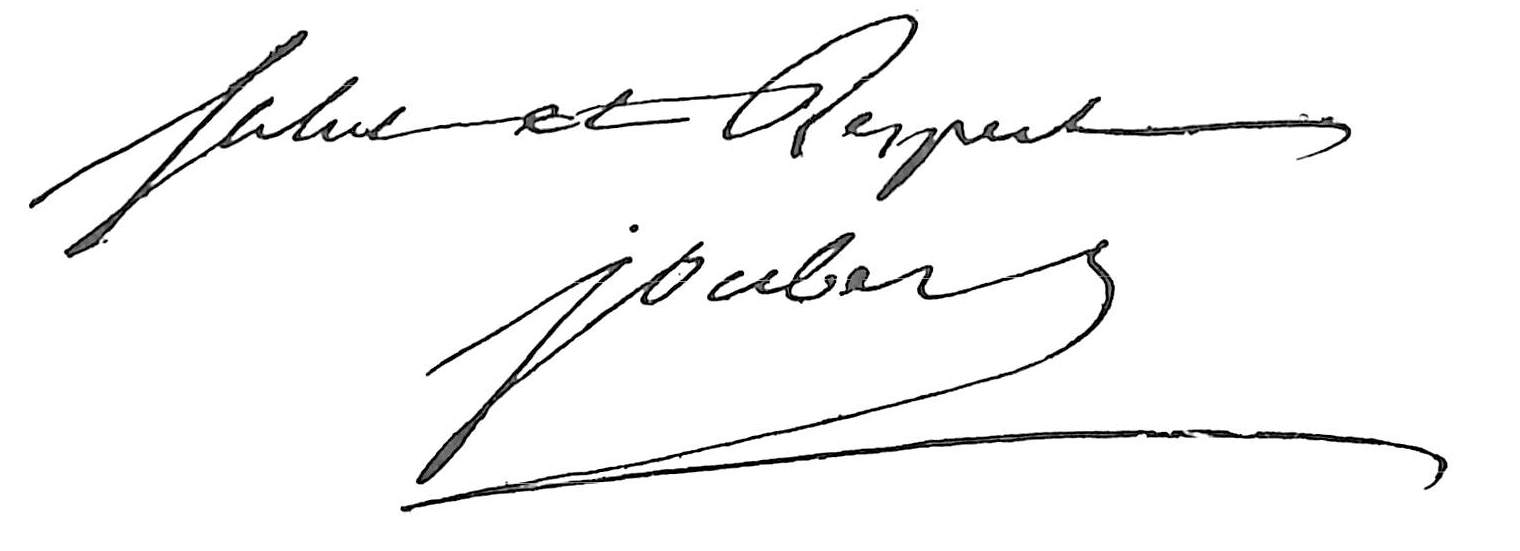 Salut et Respect
Joubert